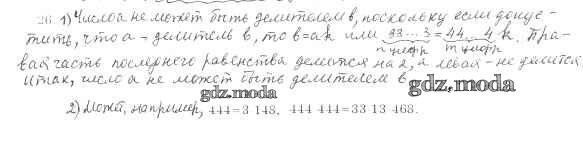 26. 1) Число а не может быть делителем в, поскольку если допус-
тить, что а - делитель в, то в=ак или 33...3 = 44...4 к. Пра-
n цифр m цифр
вая часть последнего равенства делится на 2, а левая - не делится.
Итак, число а не может быть делителем в
gdz.moda
gdz.moda
2) Может, например, 444=3·148, 444 444=33·13 468.